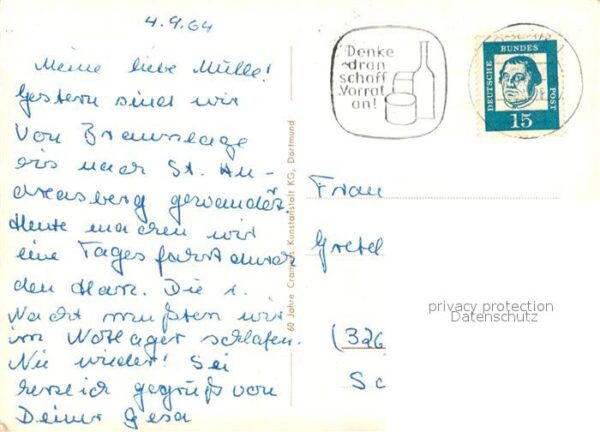 4.9.64
Meine liebe Mülle!
Gestern sind wir
von Braunlage
bis nach St. An-
dreasberg gewandert.
Heute machen wir
eine Tagesfahrt durch
den Harz. Die 1.
Nacht mußten wir
im Notlager schlafen.
Nie wieder! Sei
herzlich gegrüßt von
Deiner Gesa
60 Jahre Cramers Kunstanstalt KG, Dortmund
Denke
dran
schaff
Vorrat
an!
DEUTSCHE BUNDES POST
15
Frau
Gretel
(326
Sc
privacy protection
Datenschutz